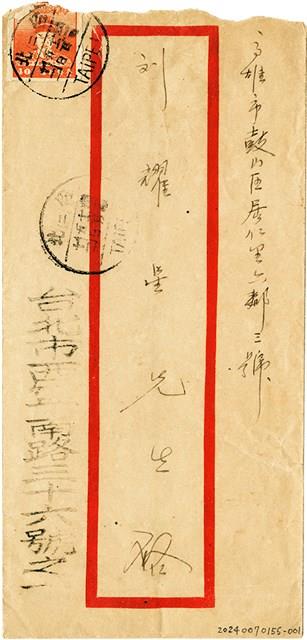 高雄市鼓山区居仁里六鄰三號
刘耀星先生啟
台北市西寧南路三十六號之
TAIPEI
10
20240070155-001